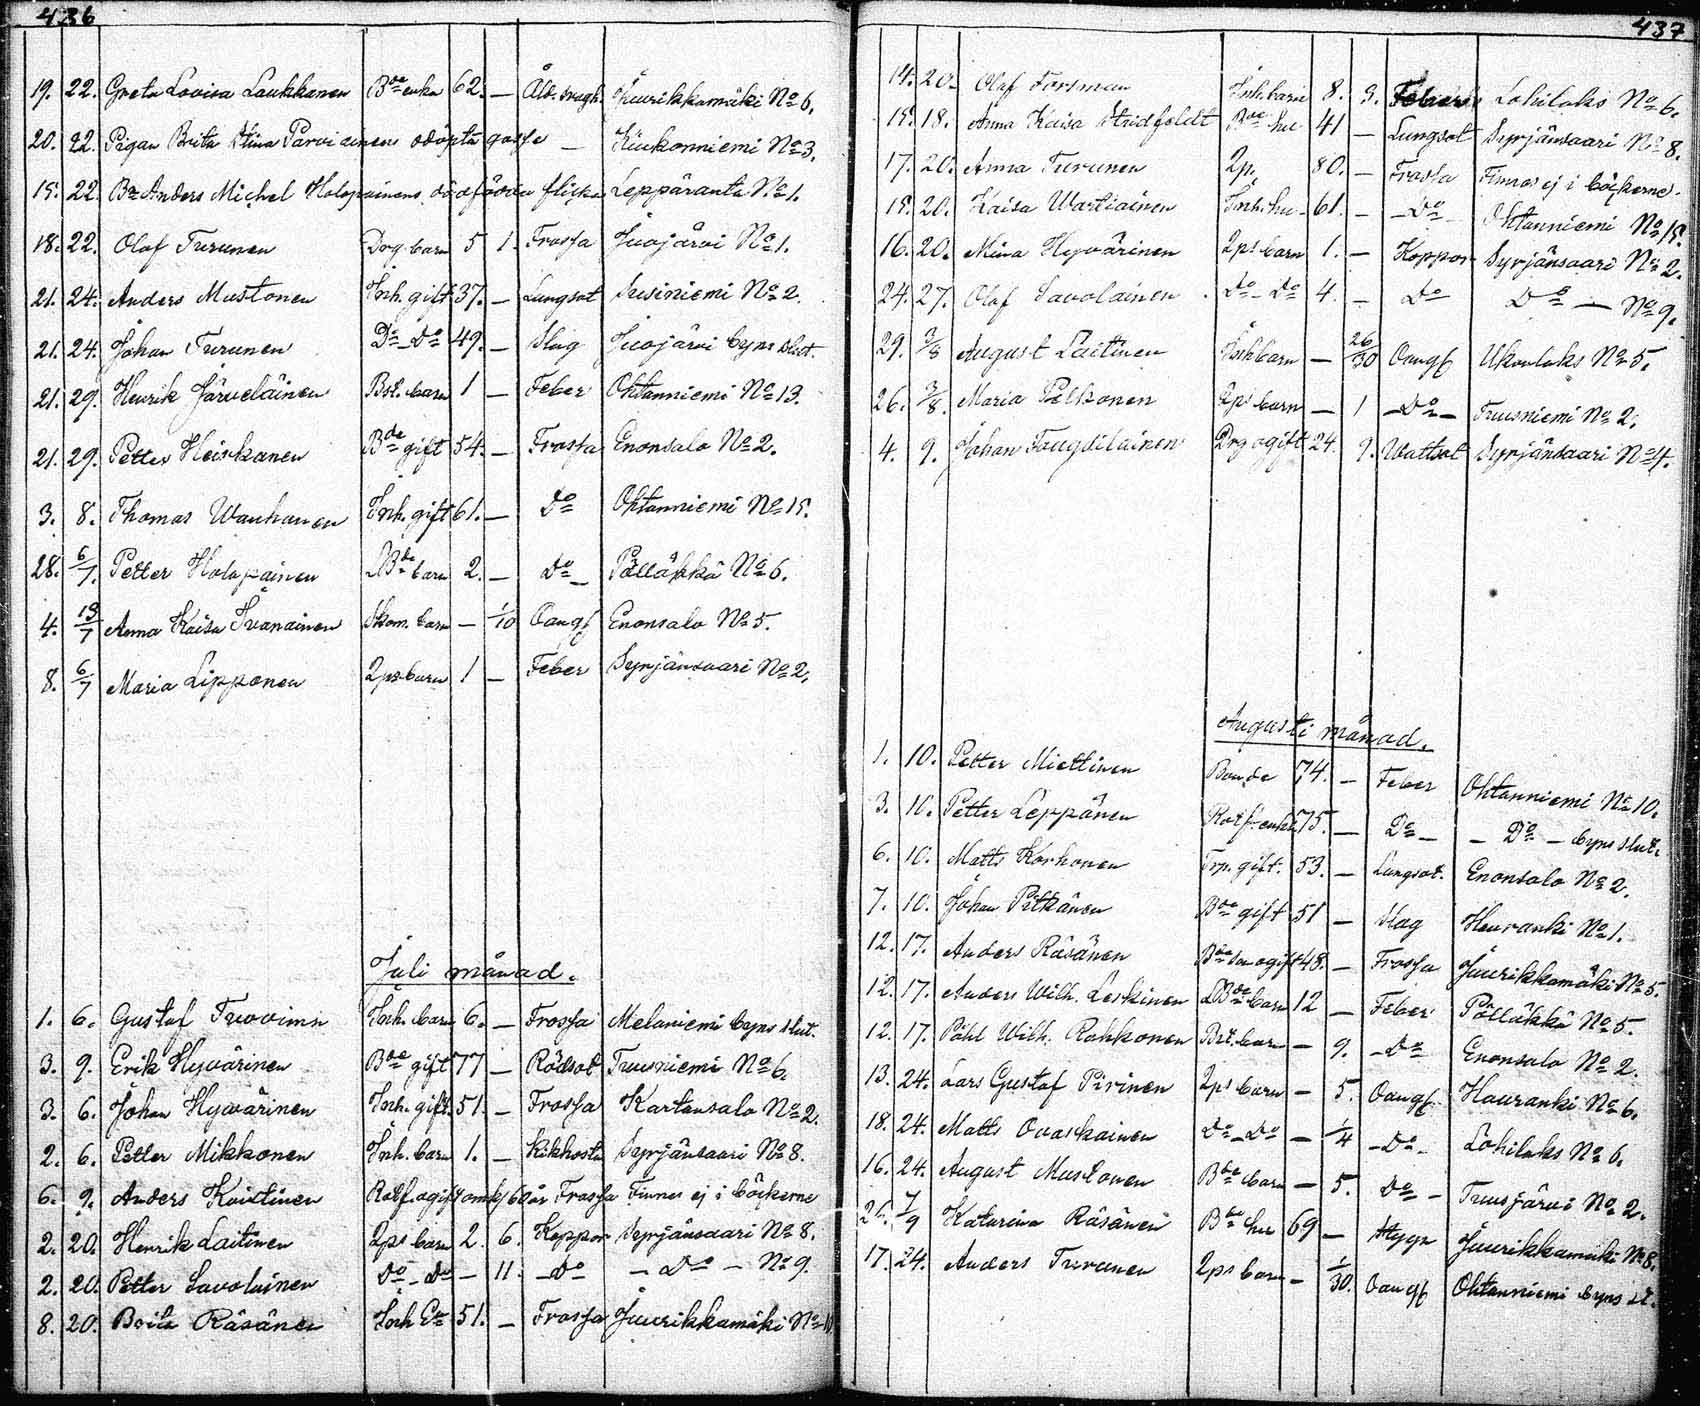 436
19. 22. Greta Lovisa Laukkanen Bde enka 62. — Åld. svagh. Juurikkamäki No 6.
20. 22. Pigan Brita Stina Parviainens odöpta gosse — Kiukonniemi No 3.
15. 22. Be Anders Michel Holopainens dödfödda flicka Leppäranta No 1.
18. 22. Olof Turunen Drg barn 5 1. Frossa Juojärvi No 1.
21. 24. Anders Mustonen Inh. gift 37. — Lungsot Susiniemi No 2.
21. 24. Johan Turunen Do - Do 49. — Slag Juojärvi byns slut.
21. 29. Henrik Järveläinen Bst. barn 1 — Feber Ohtanniemi No 13.
21. 29. Petter Heiskanen Bde gift 54. — Frossa Enonsalo No 2.
3. 8. Thomas Wanhanen Inh. gift 61. — Do Ohtanniemi No 15.
28. 6/7. Petter Holopainen Bde barn 2. — Do — Pölläkkä No 6.
4. 13/7 Anna Kaisa Ivanainen Skom. barn — 1/10 Oangf Enonsalo No 5.
8. 6/7 Maria Lipponen Lps barn 1 — Feber Syrjänsaari No 2.
Juli månad.
1. 6. Gustaf Inh. barn 6. — Frossa Melaniemi byns slut.
3. 9. Erik Hyvärinen Bde gift 77 — Rödsot Tuusniemi No 6.
3. 6. Johan Hyvärinen Inh. gift. 51. — Frossa Kartansalo No 2.
2. 6. Petter Mikkonen Inh. barn 1. — Kikhosta Syrjänsaari No 8.
6. 9. Anders Kaivtinen Rotf. ogift omkr. 60 år Frossa Finnes ej i böckerne
2. 20. Henrik Laitinen Lps barn 2. 6. Koppor Syrjänsaari No 8.
2. 20. Petter Savolainen Do - Do — 11. — Do — Do — No 9.
8. 20. Brita Räsänen Inh. Ea 51. — Frossa Juurikkamäki No 11
437
14. 20. Olof Forsman Inh. barn 8. 3. Feber Lohilaks No 6.
15. 18. Anna Kaisa Stridfeldt Bde hu 41 — Lungsot Syrjänsaari No 8.
17. 20. Anna Turunen Lp. 80. — Frossa Finnes ej i böckerne.
15. 20. Kaisa Wartiainen Inh. hu 61. — Do — Ohtanniemi No 15.
16. 20. Miina Hyvärinen Lps barn 1. — Koppor Syrjänsaari No 2.
24. 27. Olof Savolainen. Do - Do 4. — Do Do — No 9.
29. 3/8 August Laitinen Inh barn — 26/30 Oangf Ukonlaks No 5.
26. 3/8. Maria Pelkonen Lps barn — 1 — Do — Tuusniemi No 2.
4. 9. Johan Taugdilainen Drg ogift 24. 9. Wattsot Syrjänsaari No 4.
Augusti månad.
1. 10. Petter Miettinen Bonde 74. — Feber Ohtanniemi No 10.
3. 10. Petter Leppänen Rotf. enkl. 75. — Do — — Do — byns slut.
6. 10. Matts Korhonen Trp. gift. 53. — Lungsot. Enonsalo No 2.
7. 10. Johan Pitkänen Bde gift 51 — Slag Hauranki No 1.
12. 17. Anders Räsänen Bde son ogift 48. — Frossa Juurikkamäki No 5.
12. 17. Anders Wilh. Leskinen Bde barn 12 — Feber Pölläkkä No 5.
12. 17. Påhl Wilh. Rahkonen Bst. barn — 9. — Do Enonsalo No 2.
13. 24. Lars Gustaf Pirinen Lps barn — 5. Oangf. Hauranki No 6.
18. 24. Matts Ovaskainen Do - Do — 1/4 — Do — Lohilaks No 6.
16. 24. August Mustonen Bde barn — 5. Do — Tuusjärvi No 2.
26. 7/9 Katarina Räsänen Bde hu 69 — Juurikkamäki No 8.
17. 24. Anders Turunen Lps barn — 1/30. Oangf Ohtanniemi byns sl.